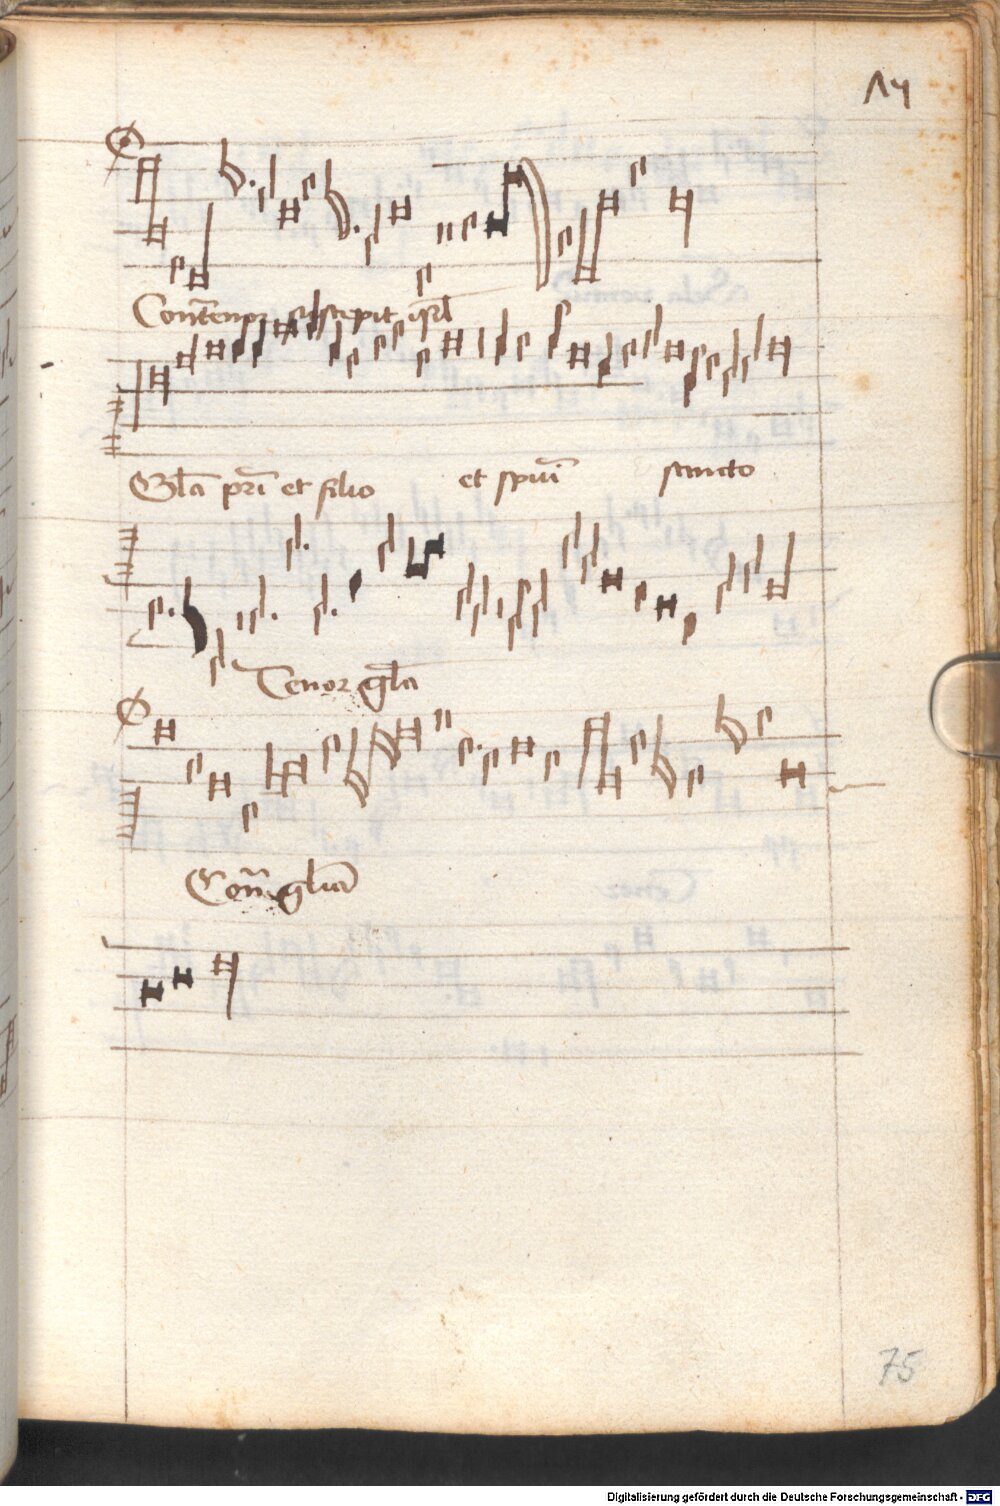 14
Contratenor suscepit isrl
Gla pri et filio et spui sancto
Tenor gla
Contr gloria
75
Digitalisierung gefördert durch die Deutsche Forschungsgemeinschaft - DFG